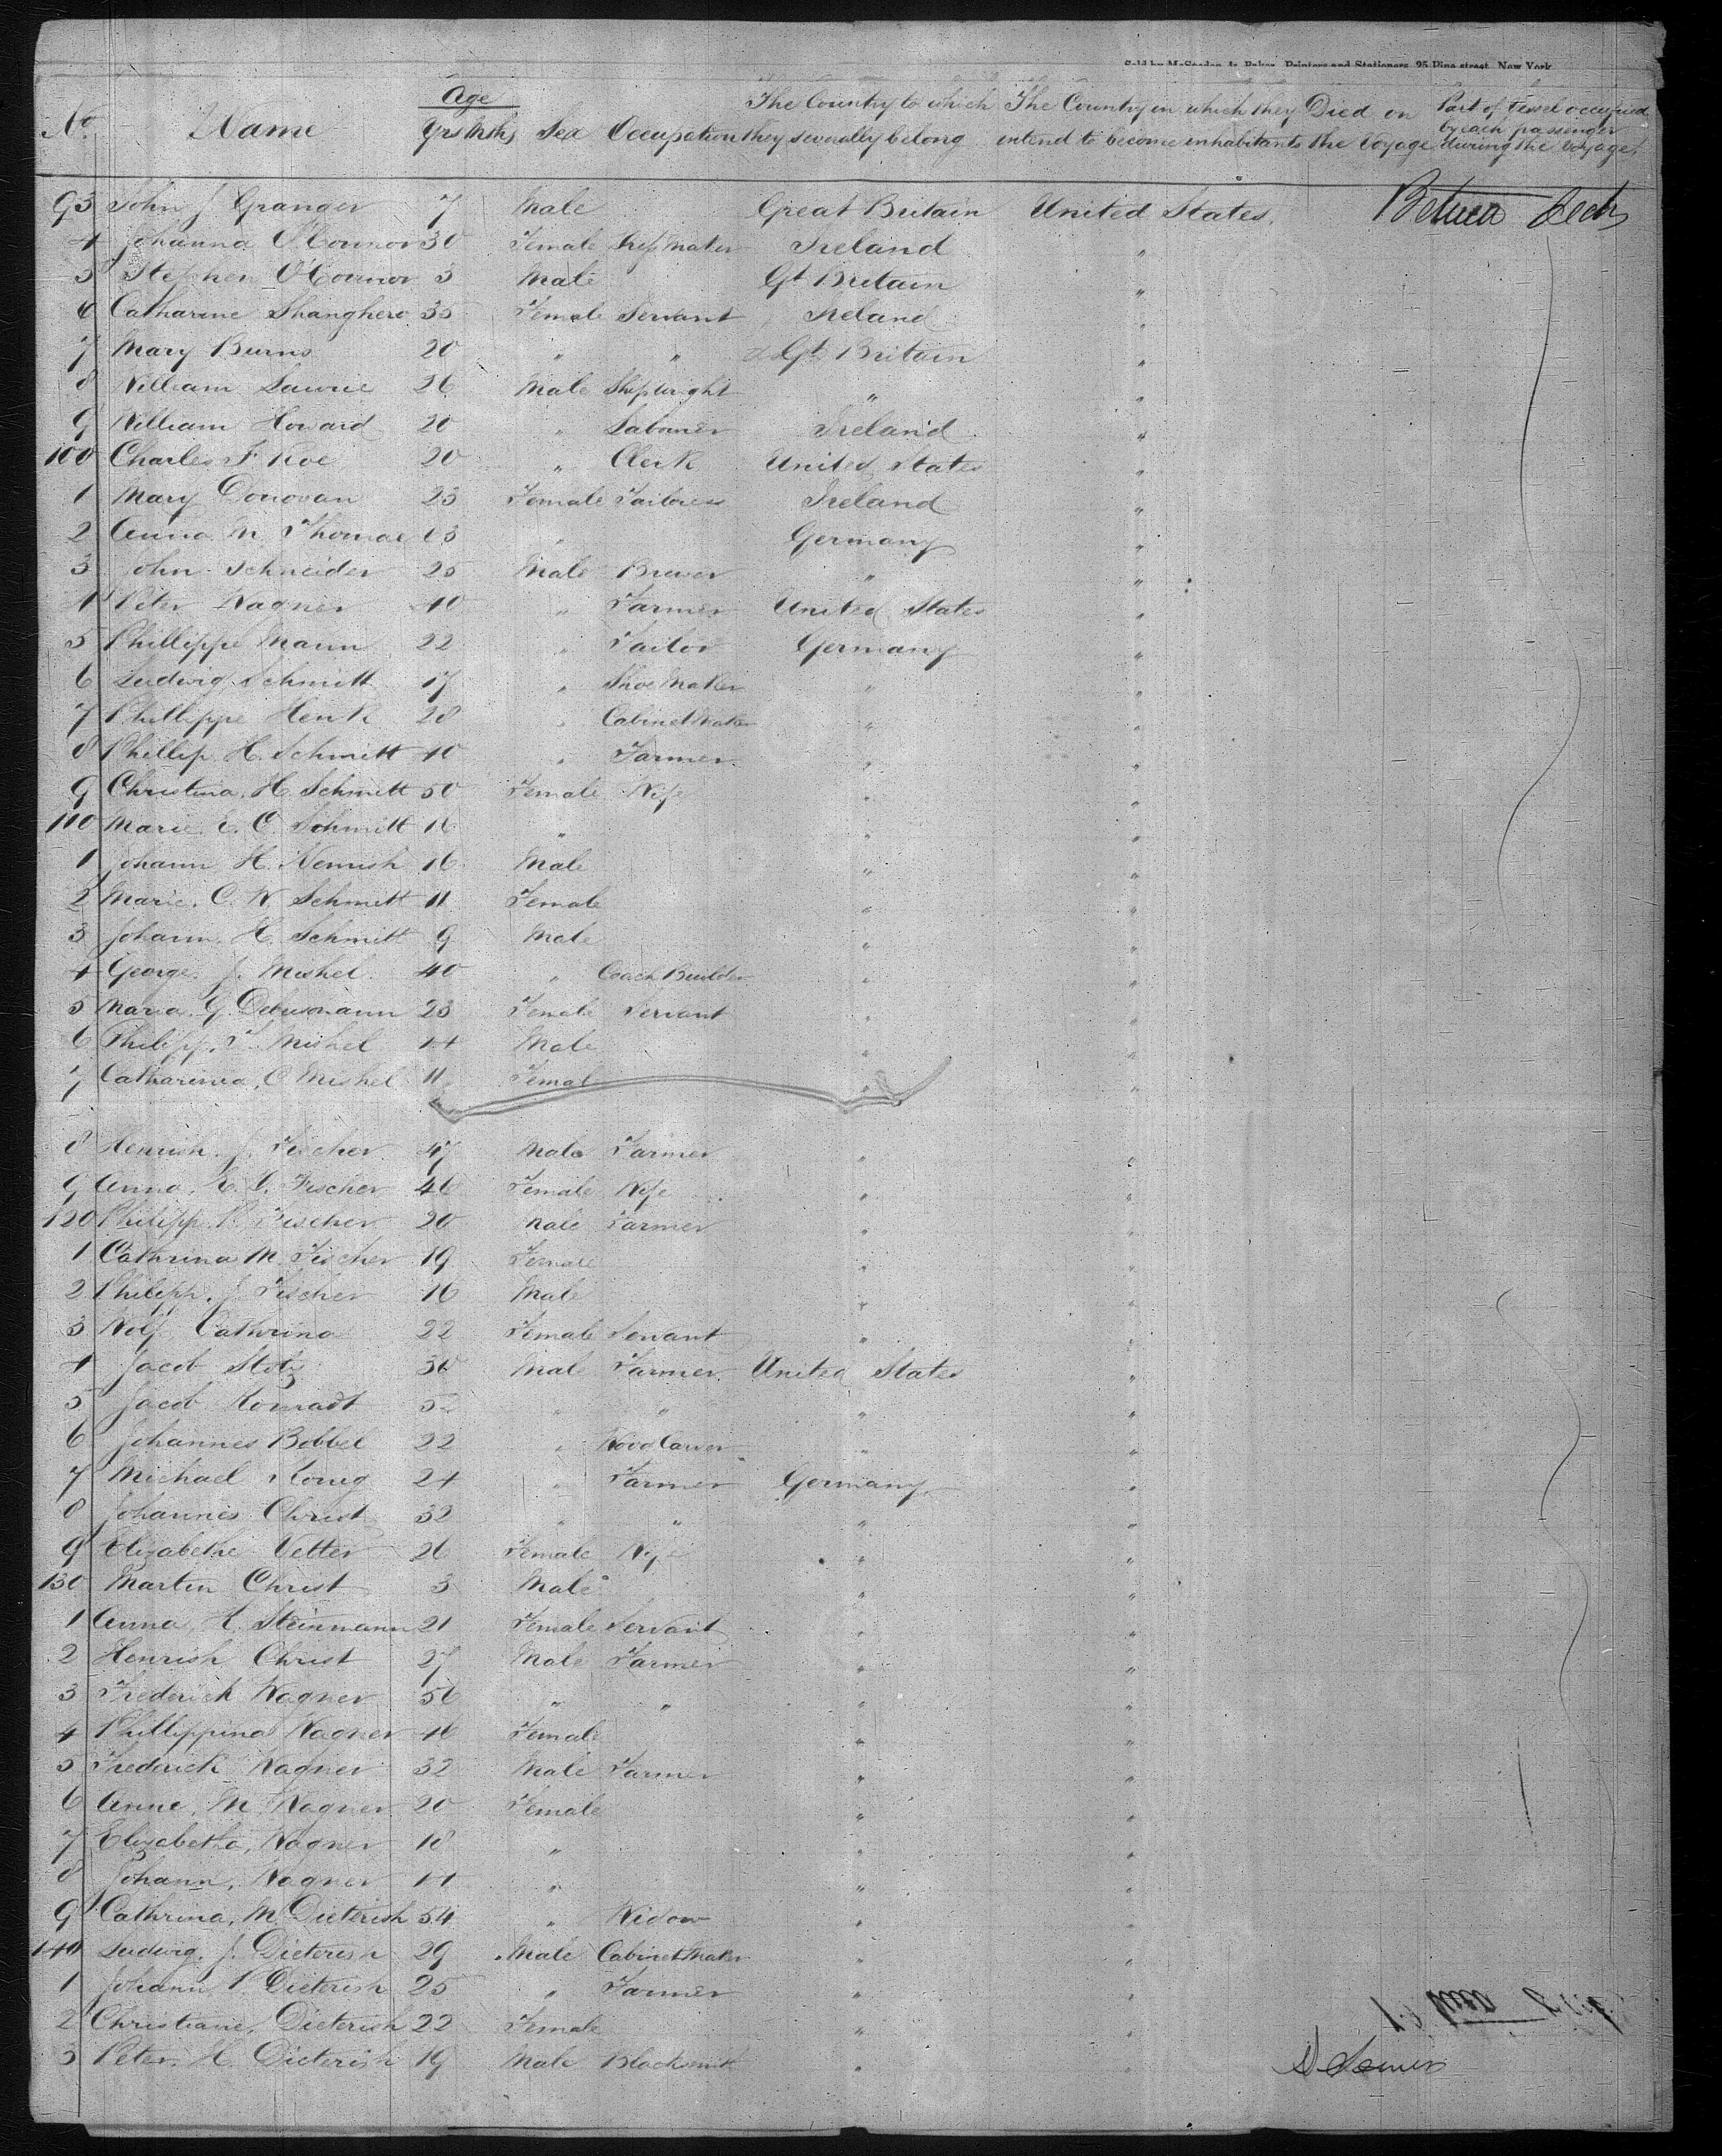 Sold by McSpedon & Baker, Printers and Stationers, 25 Pine street, New York
No Name Age Yrs Mths Sex Occupation The Country to which they severally belong The Country in which they intend to become inhabitants Died on the Voyage Part of Vessel occupied by each passenger during the voyage.
93 John J Granger 7 Male Great Britain United States. Betwen Decks
4 Johanna O'Connor 30 Female Dress Maker Ireland "
5 Stephen O'Connor 3 Male Gt Britain "
6 Catharine Shanghero 35 Female Servant Ireland "
7 Mary Burns 20 " " Gt Britain "
8 William Lawrie 26 Male Shipwright " "
9 William Howard 20 " Labourer Ireland "
100 Charles F Roe 20 " Clerk United States "
1 Mary Donovan 23 Female Tailoress Ireland "
2 Anna M Thomae 13 " Germany "
3 John Schneider 25 Male Brewer " "
4 Peter Wagner 40 " Farmer United States "
5 Phillippe Mann 22 " Tailor Germany "
6 Ludwig Schmitt 17 " Shoe Maker " "
7 Phillippe Henk 28 " Cabinet Maker " "
8 Phillip H. Schmitt 40 " Farmer " "
9 Christina. H. Schmitt 50 Female Wife " "
110 Marie. E. C. Schmitt 16 " " "
1 Johann H. Nemish 16 Male " "
2 Marie. C. W Schmitt 11 Female " "
3 Johann. H. Schmitt 9 Male " "
4 George. J. Mishel 40 " Coach Builder " "
5 Maria. G. Debusmann 23 Female Servant " "
6 Philipp. Mishel 14 Male " "
7 Catharinia. C Mishel 11 Female " "
8 Henrish. J. Fischer 47 Male Farmer " "
9 Anna. E. G. Fischer 46 Female Wife " "
120 Philipp. P. Fischer 20 Male Farmer " "
1 Cathrina M. Fischer 19 Female " "
2 Philipp. J. Fischer 16 Male " "
3 Wolf Cathrina 22 Female Servant " "
4 Jacob Stotz 30 Male Farmer United States "
5 Jacob Konradt 52 " " " "
6 Johannes Bobbel 22 " Wood Carver " "
7 Michael Konig 24 " Farmer Germany "
8 Johannes Christ 32 " " " "
9 Elizabethe Vetter 26 Female Wife " "
130 Martin Christ 3 Male " "
1 Anna. H. Steinmann 21 Female Servant " "
2 Henrish Christ 27 Male Farmer " "
3 Frederick Wagner 56 " " " "
4 Phillippina Wagner 46 Female " "
5 Frederick Wagner 32 Male Farmer " "
6 Anne. M Wagner 20 Female " "
7 Elizabetha. Wagner 18 " " "
8 Johann. Wagner 14 " " "
9 Cathrina. M. Dieterish 54 " Widow " "
140 Ludwig. J. Dieterish 29 Male Cabinet Maker " "
1 Johann P. Dieterish 25 " Farmer " "
2 Christiane. Dieterish 22 Female " "
3 Peter. H. Dieterish 19 Male Blacksmith " "